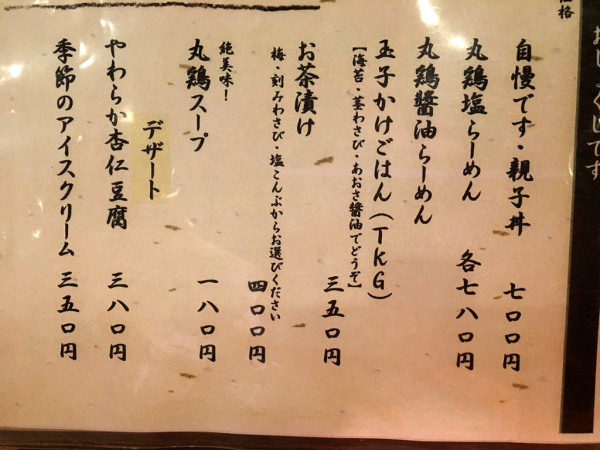 価格
おしょくじです
自慢です・親子丼 七〇〇円
丸鶏塩らーめん
丸鶏醬油らーめん 各七八〇円
玉子かけごはん（TKG） 三五〇円
【海苔・茎わさび・あおさ醬油でどうぞ】
お茶漬け 四〇〇円
梅・刻みわさび・塩こんぶからお選びください
絶美味！
丸鶏スープ 一八〇円
デザート
やわらか杏仁豆腐 三八〇円
季節のアイスクリーム 三五〇円